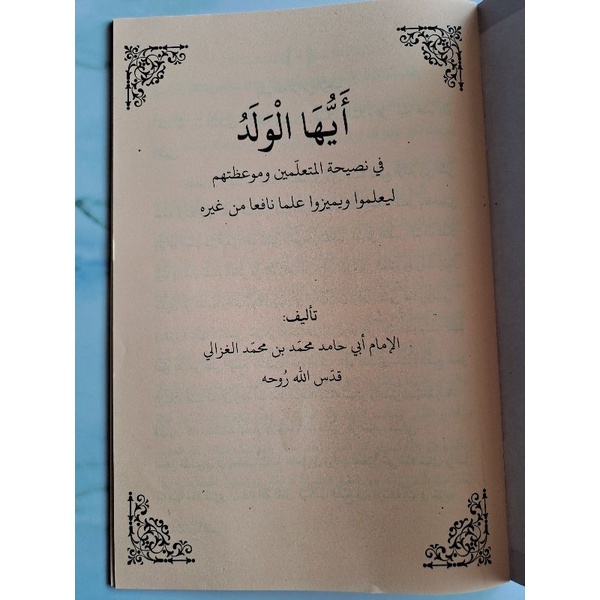 أَيُّهَا الْوَلَدُ
في نصيحة المتعلّمين وموعظتهم
ليعلموا ويميزوا علما نافعا من غيره
تأليف:
الإمام أبي حامد محمّد بن محمّد الغزالي
قدّس الله رُوحه